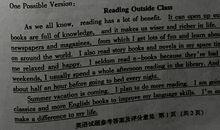 One Possible Version:
Reading Outside Class
As we all know, reading has a lot of benefit. It can open up our
books are full of knowledge, and it makes us wiser and richer in
newspapers and magazines, from which I get lots of fun and learn about
on around the world. I also read story books and novels in my spare time
me relaxed and happy. I seldom read e-books because they're bad
weekends, I usually spend a whole afternoon reading in the library. And
about half an hour before going to bed every night.
Summer vacation is coming. I plan to do more reading. I am going
classics and more English books to improve my language skills. I'm
make a difference to my life.
英语试题参考答案及评分意见 第1页（共2页）